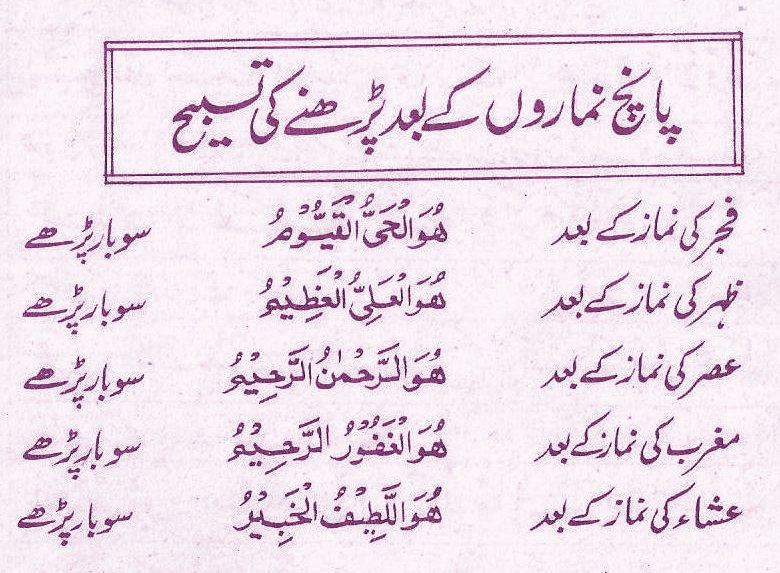 پانچ نمازوں کے بعد پڑھنے کی تسبیح
فجر کی نماز کے بعد هُوَ الْحَىُّ الْقَيُّوْمُ سو بار پڑھے
ظہر کی نماز کے بعد هُوَ الْعَلِىُّ الْعَظِيْمُ سو بار پڑھے
عصر کی نماز کے بعد هُوَ الرَّحْمٰنُ الرَّحِيْمُ سو بار پڑھے
مغرب کی نماز کے بعد هُوَ الْغَفُوْرُ الرَّحِيْمُ سو بار پڑھے
عشاء کی نماز کے بعد هُوَ اللَّطِيْفُ الْخَبِيْرُ سو بار پڑھے